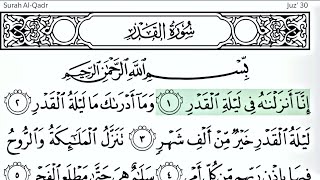 Surah Al-Qadr Juz' 30
سُورَةُ الْقَدْرِ
بِسْمِ اللَّهِ الرَّحْمَٰنِ الرَّحِيمِ
إِنَّا أَنزَلْنَٰهُ فِي لَيْلَةِ الْقَدْرِ ١ وَمَا أَدْرَىٰكَ مَا لَيْلَةُ الْقَدْرِ ٢
لَيْلَةُ الْقَدْرِ خَيْرٌ مِّنْ أَلْفِ شَهْرٍ ٣ تَنَزَّلُ الْمَلَٰٓئِكَةُ وَالرُّوحُ
فِيهَا بِإِذْنِ رَبِّهِم مِّن كُلِّ أَمْرٍ ٤ سَلَٰمٌ هِيَ حَتَّىٰ مَطْلَعِ الْفَجْرِ ٥